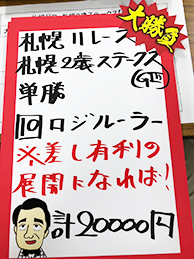 大勝負
札幌11レース
札幌2歳ステークス
(GⅢ)
単勝
⑩ロジルーラー
※差し有利の
展開になれば!
計20000円